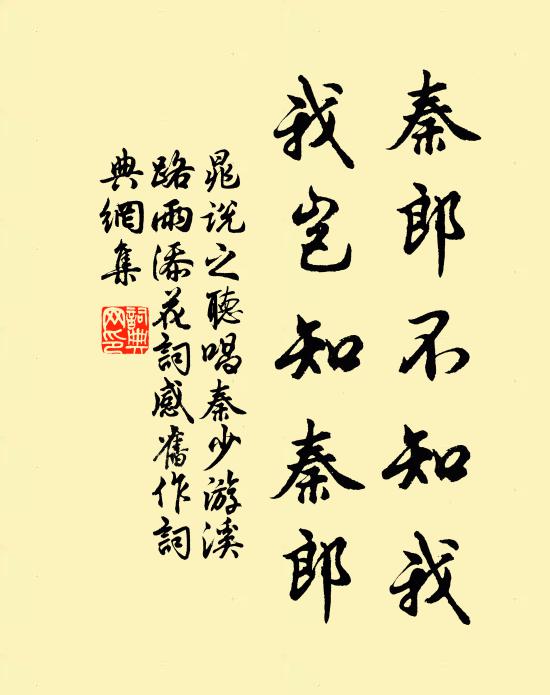 秦郎不知我
我岂知秦郎
晁说之聽唱秦少游溪
路雨添花詞感舊作詞
典網集
詞典
网印